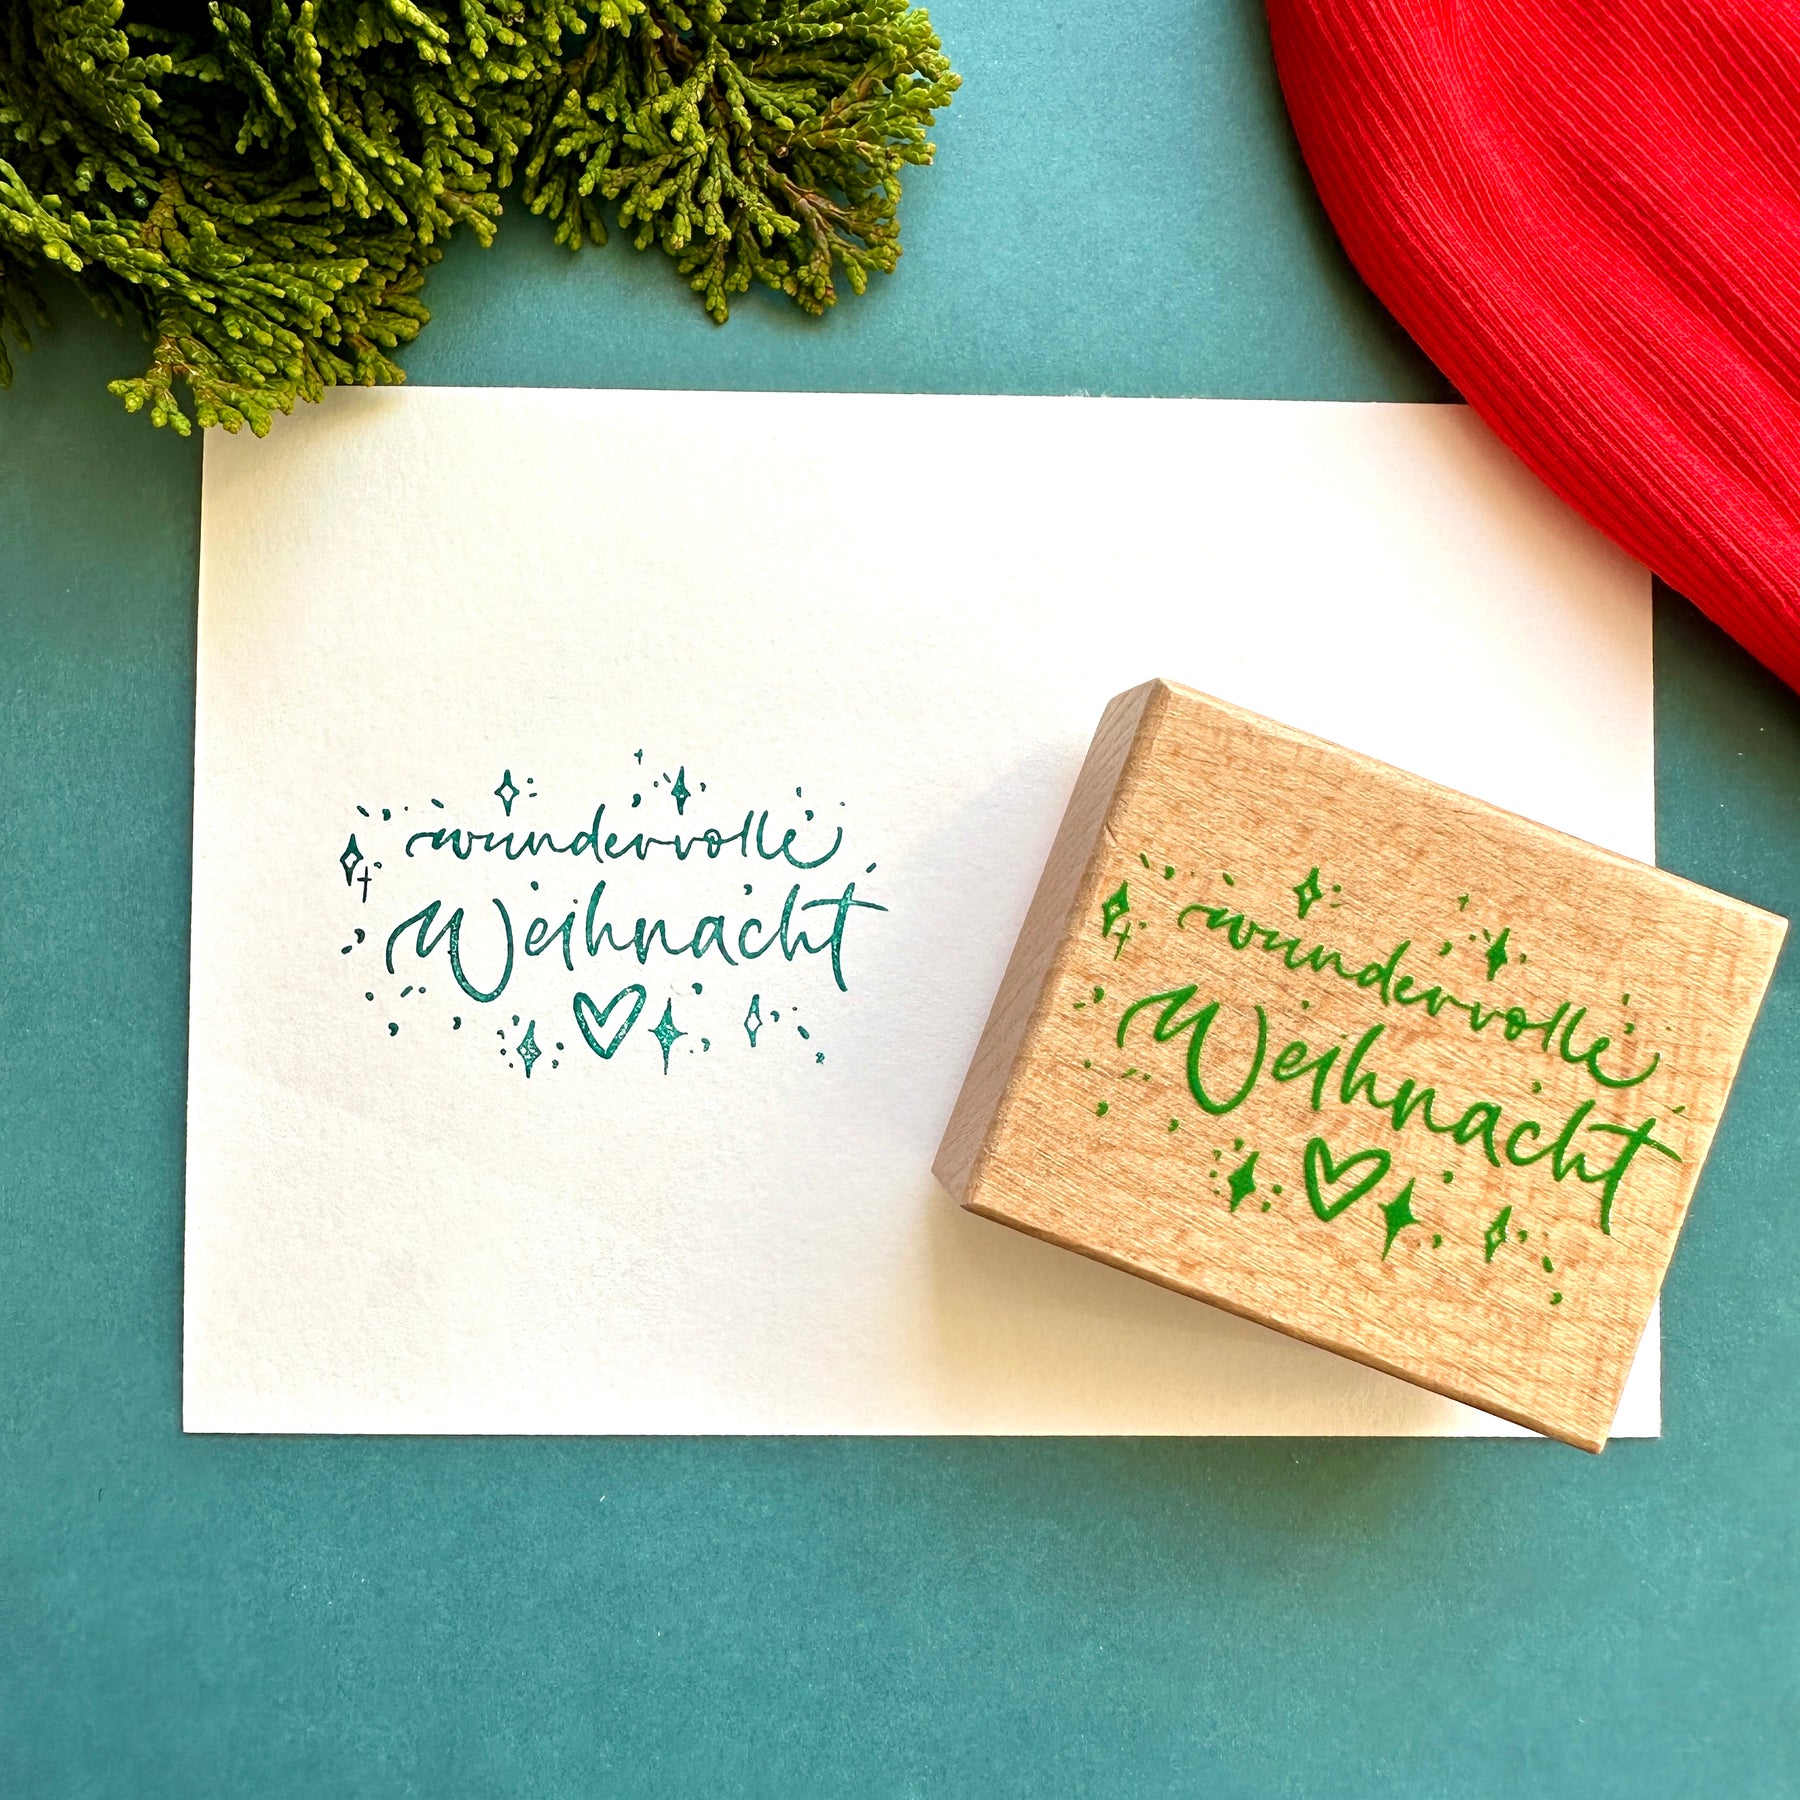 wundervolle
Weihnacht
wundervolle
Weihnacht